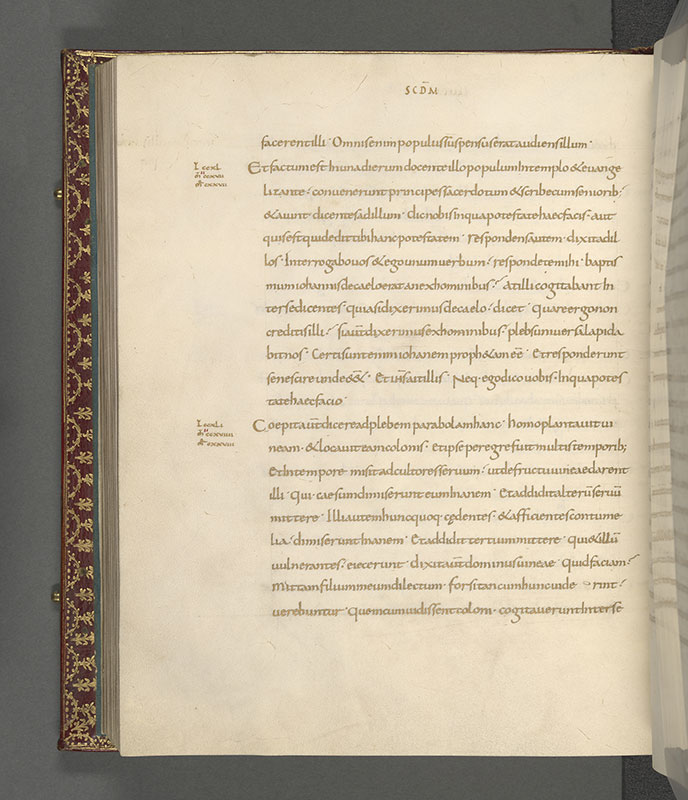 SCDM
facerent illi · Omnis enim populus suspensus erat audiens illum ·
L ccxl
Mt ccxvii
Mr cxxvii
Et factum est In una dierum docente illo populum In templo & euange
lizante · conuenerunt principes sacerdotum & scribe cum seniorib;
& aiunt dicentes ad illum · dic nobis in qua potestate haec facis · aut
quis est qui dedit tibi hanc potestatem · respondens autem · dixit ad il
los · Interrogabo uos & ego unum uerbum · respondete mihi · baptis
mum iohannis de caelo erat an ex hominibus · At illi cogitabant In
ter se dicentes · quia si dixerimus de caelo · dicet · quare ergo non
creditis illi · si aut̄ dixerimus ex hominibus · plebs uniuersa lapida
bit nos · Certi sunt enim iohanem proph&an eē · Et responderunt
se nescire unde e&̄ · Et ihs̄ ait illis · Neq· ego dico uobis · In qua potes
tate haec facio ·
L ccxli
Mt ccxviiii
Mr cxxviii
Coepit aut̄ dicere ad plebem parabolam hanc · homo plantauit ui
neam · & locauit eam colonis · et ipse peregre fuit multis temporib;
et In tempore misit ad cultores seruum · ut de fructu uineae darent
illi · qui caesum dimiserunt eum Inanem · Et addidit alterū seruū
mittere · Illi autem hunc quoq· cędentes · & afficientes contume
lia · dimiserunt Inanem · Et addidit tertium mittere · qui & illū
uulnerantes · eiecerunt · dixit aut̄ dominus uineae · Quid faciam ·
Mittam filium meum dilectum · forsitan cum hunc uiderint ·
uerebuntur · Quem cum uidissent coloni · cogitauerunt Inter se